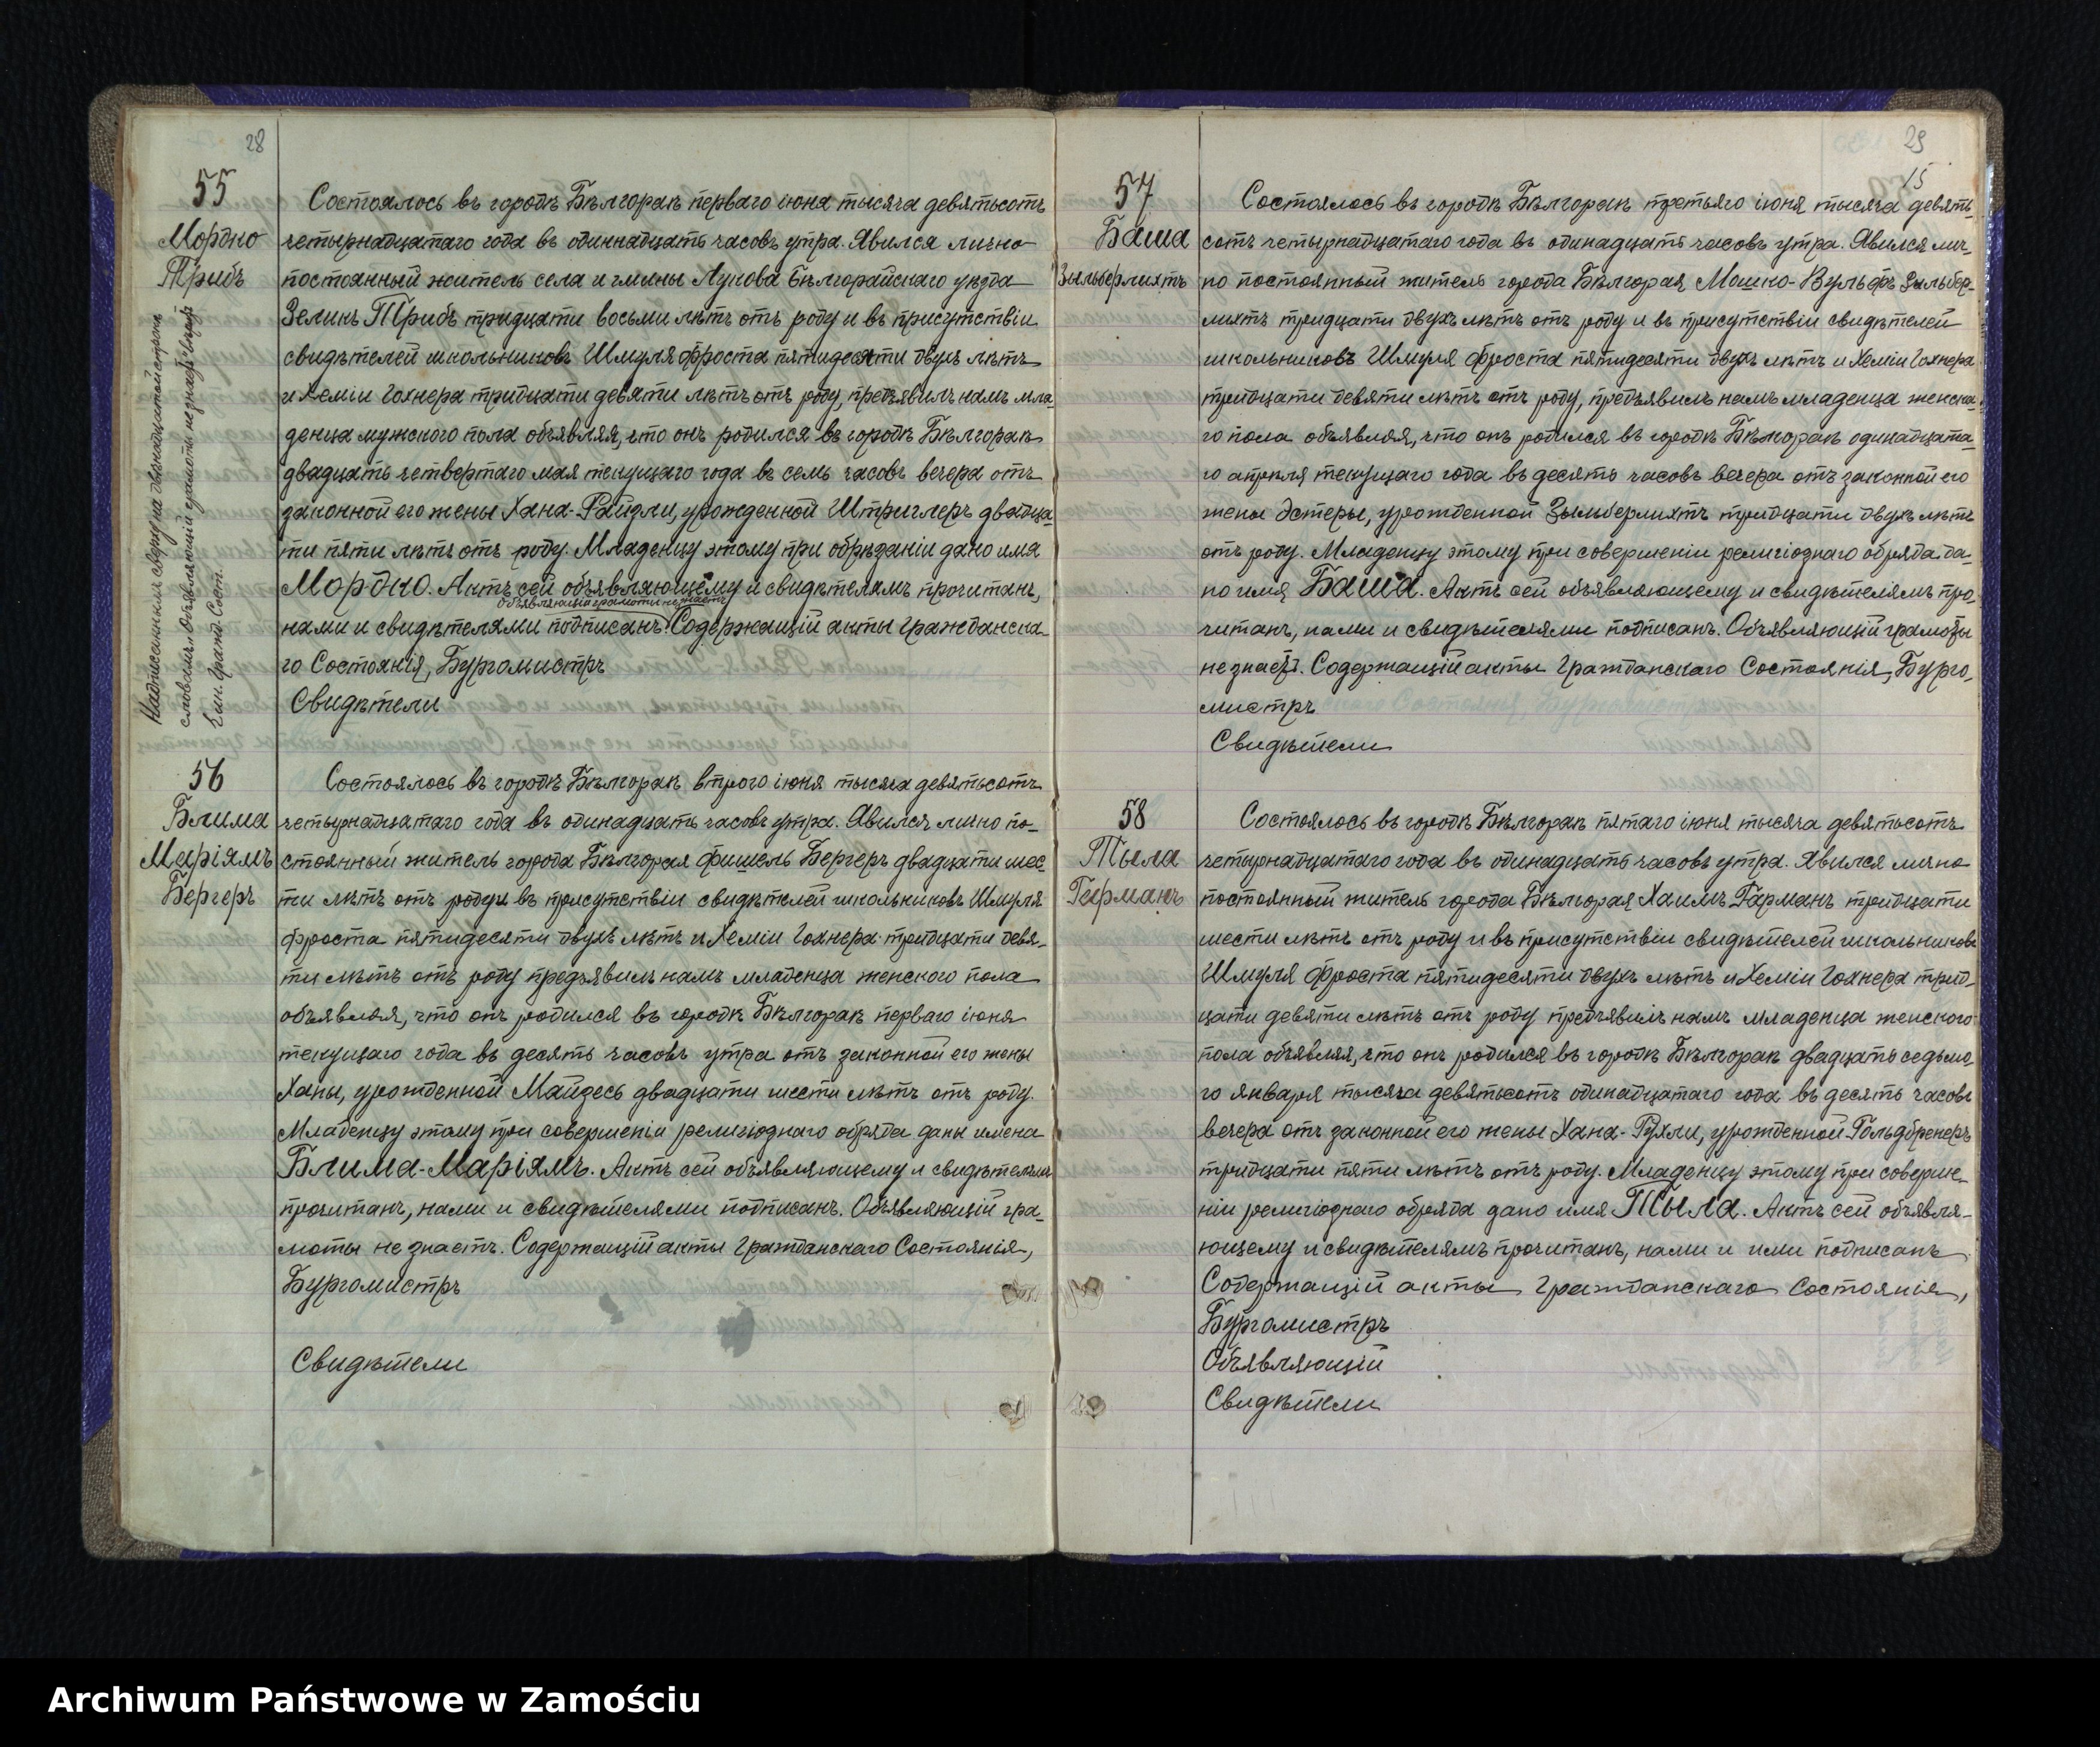 28
55
Мордко
Трибъ
Надписанныя сверху на двѣнадцатой строкѣ
словами: Объявляющій грамоты не знаетъ вѣрны
Чин. Гражд. Сост.
Состоялось въ городѣ Бѣлгораѣ перваго іюня тысяча девятьсотъ
четырнадцатаго года въ одиннадцать часовъ утра. Явился лично
постоянный житель села и гмины Лукова Бѣлгорайскаго уѣзда
Зеликъ Трибъ тридцати восьми лѣтъ отъ роду и въ присутствіи
свидѣтелей школьниковъ Шмуля Фроста пятидесяти двухъ лѣтъ
и Хеміи Гохнера тридцати девяти лѣтъ отъ роду, предъявилъ намъ мла-
денца мужского пола объявляя, что онъ родился въ городѣ Бѣлгораѣ
двадцать четвертаго мая текущаго года въ семь часовъ вечера отъ
законной его жены Хана-Райзли, урожденной Штриглеръ двадца-
ти пяти лѣтъ отъ роду. Младенцу этому при обрѣзаніи дано имя
Мордко. Актъ сей объявляющему и свидѣтелямъ прочитанъ,
объявляющій грамоты не знаетъ
нами и свидѣтелями подписанъ. Содержащій акты Гражданска-
го Состоянія, Бургомистръ
Свидѣтели
56
Блима
Маріямъ
Бергеръ
Состоялось въ городѣ Бѣлгораѣ второго іюня тысяча девятьсотъ
четырнадцатаго года въ одинадцать часовъ утра. Явился лично по-
стоянный житель города Бѣлгорая Фишель Бергеръ двадцати шес-
ти лѣтъ отъ роду и въ присутствіи свидѣтелей школьниковъ Шмуля
Фроста пятидесяти двухъ лѣтъ и Хеміи Гохнера тридцати девя-
ти лѣтъ отъ роду предъявилъ намъ младенца женского пола
объявляя, что онъ родился въ городѣ Бѣлгораѣ перваго іюня
текущаго года въ десять часовъ утра отъ законной его жены
Ханы, урожденной Майзесъ двадцати шести лѣтъ отъ роду.
Младенцу этому при совершеніи религіознаго обряда даны имена
Блима-Маріямъ. Актъ сей объявляющему и свидѣтелямъ
прочитанъ, нами и свидѣтелями подписанъ. Объявляющій гра-
моты не знаетъ. Содержащій акты Гражданскаго Состоянія,
Бургомистръ
Свидѣтели
29
15
57
Баша
Зыльберлихтъ
Состоялось въ городѣ Бѣлгораѣ третьяго іюня тысяча девять-
сотъ четырнадцатаго года въ одинадцать часовъ утра. Явился лич-
но постоянный житель города Бѣлгорая Мошко-Вульфъ Зыльбер-
лихтъ тридцати двухъ лѣтъ отъ роду и въ присутствіи свидѣтелей
школьниковъ Шмуля Фроста пятидесяти двухъ лѣтъ и Хеміи Гохнера
тридцати девяти лѣтъ отъ роду, предъявилъ намъ младенца женска-
го пола объявляя, что онъ родился въ городѣ Бѣлгораѣ одинадцата-
го апрѣля текущаго года въ десять часовъ вечера отъ законной его
жены Эстеры, урожденной Зыльберлихтъ тридцати двухъ лѣтъ
отъ роду. Младенцу этому при совершеніи религіознаго обряда да-
но имя Баша. Актъ сей объявляющему и свидѣтелямъ про-
читанъ, нами и свидѣтелями подписанъ. Объявляющій грамоты
не знаетъ. Содержащій акты Гражданскаго Состоянія, Бурго-
мистръ
Свидѣтели
58
Тыла
Гарманъ
Состоялось въ городѣ Бѣлгораѣ пятаго іюня тысяча девятьсотъ
четырнадцатаго года въ одинадцать часовъ утра. Явился лично
постоянный житель города Бѣлгорая Хаимъ Гарманъ тридцати
шести лѣтъ отъ роду и въ присутствіи свидѣтелей школьниковъ
Шмуля Фроста пятидесяти двухъ лѣтъ и Хеміи Гохнера трид-
цати девяти лѣтъ отъ роду предъявилъ намъ младенца женского
пола объявляя, что онъ родился въ городѣ Бѣлгораѣ двадцать седьмо-
го января тысяча девятьсотъ одинадцатаго года въ десять часовъ
вечера отъ законной его жены Хана-Рухли, урожденной Гольдбренеръ
тридцати пяти лѣтъ отъ роду. Младенцу этому при соверше-
ніи религіознаго обряда дано имя Тыла. Актъ сей объявля-
ющему и свидѣтелямъ прочитанъ, нами и ими подписанъ
Содержащій акты Гражданскаго Состоянія,
Бургомистръ
Объявляющій
Свидѣтели
Archiwum Państwowe w Zamościu